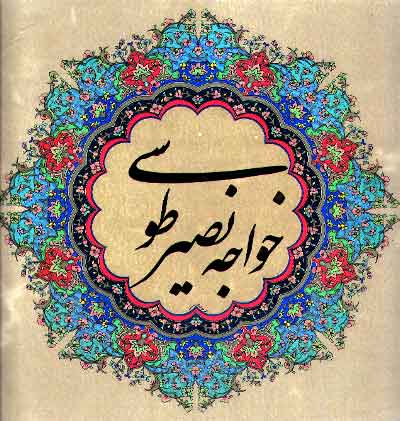 خواجه نصیر طوسی